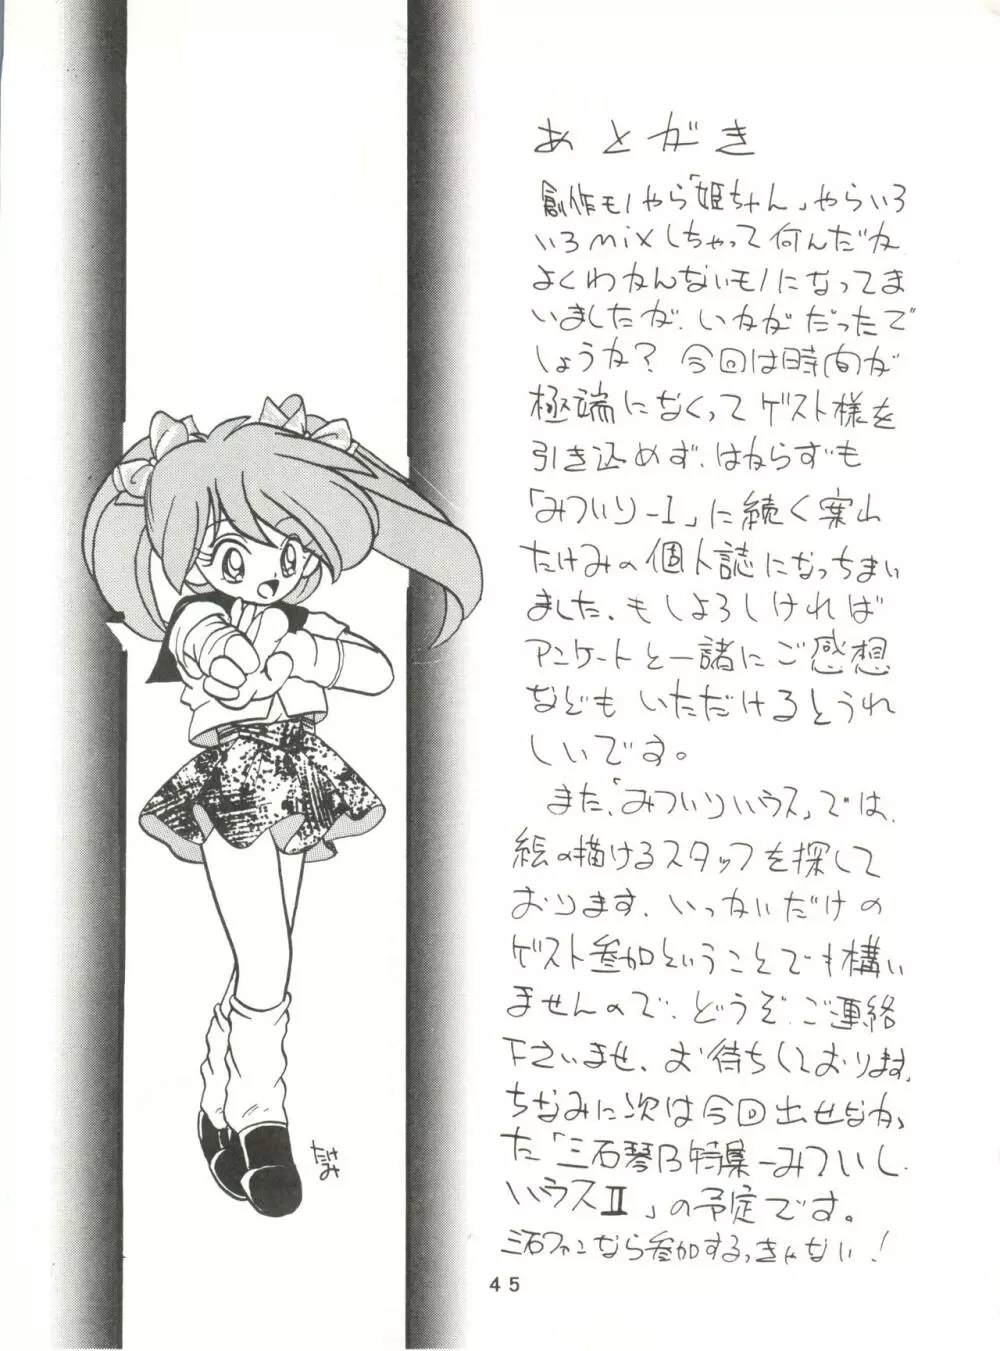 あとがき
創作モノやら「姫ちゃん」やらいろ
いろmixしちゃって何んだか
よくわかんないモノになってま
いましたが、いかがだったで
しょうか？今回は時間が
極端になくってゲスト様を
引き込めず、はからずも
「みついり-I」に続く案山
たけみの個人誌になっちまい
ました、もしよろしければ
アンケートと一諸にご感想
などもいただけるとうれ
しいです。
また、「みついりハウス」では、
絵の描けるスタッフを探して
おります、いっかいだけの
ゲスト参加ということでも構い
ませんので、どうぞ、ご連絡
下さいませ、お待ちしております、
ちなみに次は今回出せなかっ
た「三石琴乃特集-みついし
ハウスⅡ」の予定です。
三石ファンなら参加するっきゃない！
たけみ
45